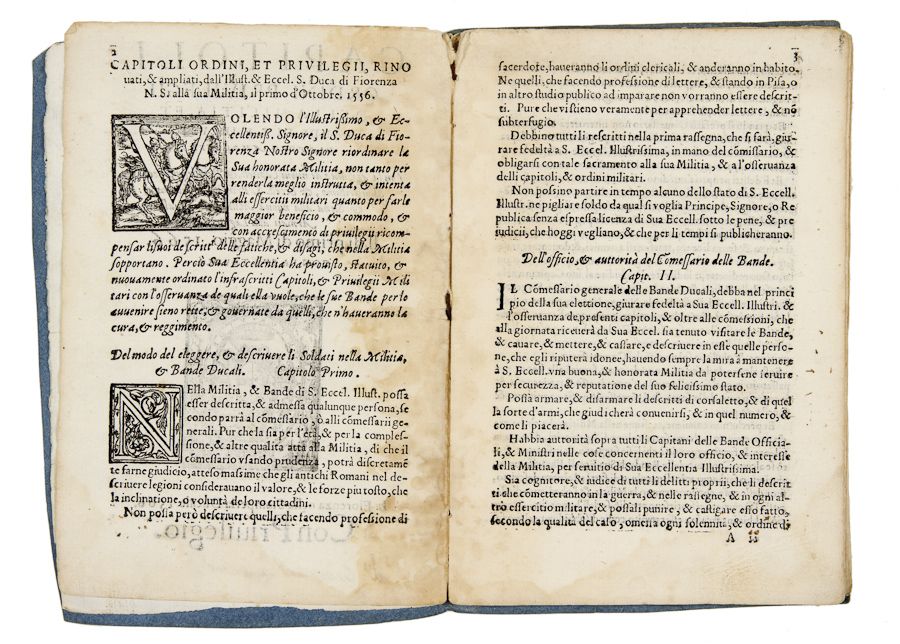 2
CAPITOLI ORDINI, ET PRIVILEGII, RINO
uati, & ampliati, dall'Illust. & Eccel. S. Duca di Fiorenza
N. S. alla sua Militia, il primo d'Ottobre. 1556.
VOLENDO l'Illustrißimo, & Ec-
cellentiß. Signore, il S. Duca di Fio-
renza Nostro Signore riordinare la
Sua honorata Militia, non tanto per
renderla meglio instrutta, & intenta
alli essercitii militari quanto per farle
maggior beneficio, & commodo, &
con accrescimento di priuilegii ricom-
pensar li suoi descritti delle fatiche, & disagi, che nella Militia
sopportano. Perciò Sua Eccellentia ha prouisto, statuito, &
nuouamente ordinato l'infrascritti Capitoli, & Priuilegii Mili
tari con l'osseruanza de quali ella vuole, che le sue Bande per lo
auuenire sieno rette, & gouernate da quelli, che n'haueranno la
cura, & reggimento.
Del modo del eleggere, & descriuere li Soldati nella Militia,
& Bande Ducali. Capitolo Primo.
NElla Militia, & Bande di S. Eccel. Illust. possa
esser descritta, & admessa qualunque persona, se
condo parrà al cõmessario, ò alli cõmessarii ge-
nerali. Pur che la sia per l'età, & per la comples-
sione, & altre qualità atta alla Militia, di che il
cõmessario vsando prudenza, potrà discretamẽ
te farne giudicio, atteso masime che gli antichi Romani nel de-
scriuere legioni considerauano il valore, & le forze piu tosto, che
la inclinatione, o voluntà de loro cittadini.
Non possa però descriuere quelli, che facendo professione di
3
sacerdote, haueranno li ordini clericali, & anderanno in habito.
Ne quelli, che facendo professione di lettere, & stando in Pisa, o
in altro studio publico ad imparare non vorranno essere descrit-
ti. Pure che vi stieno veramente per apprender lettere, & nõ
subterfugio.
Debbino tutti li rescritti nella prima rassegna, che si farà, giu-
rare fedeltà a S. Eccel. Illustrissima, in mano del cõmissario, &
obligarsi con tale sacramento alla sua Militia, & a l'osseruanza
delli capitoli, & ordini militari.
Non possino partire in tempo alcuno dello stato di S. Eccell.
Illustr. ne pigliare soldo da qual si voglia Principe, Signore, o Re
publica senza espressa licenza di Sua Eccell. sotto le pene, & pre
iudicii, che hoggi vegliano, & che per li tempi si publicheranno.
Dell'officio, & auttorità del Comessario delle Bande.
Capit. II.
IL Cõmessario generale delle Bande Ducali, debba nel princi
pio della sua elettione, giurare fedeltà a Sua Eccell. Illustri. &
l'osseruanza de presenti capitoli, & oltre alle cõmessioni, che
alla giornata riceuerà da Sua Eccel. sia tenuto visitare le Bande,
& cauare, & mettere, & cassare, e descriuere in esse quelle perso-
ne, che egli riputerà idonee, hauendo sempre la mira à mantenere
à S. Eccell. vna buona, & honorata Militia da potersene seruire
per securezza, & reputatione del suo felicissimo stato.
Possa armare, & disarmare li descritti di corsaletto, & di quel
la sorte d'armi, che giudicherà conuenirsi, & in quel numero, &
come li piacerà.
Habbia auttorità sopra tutti li Capitani delle Bande Officia-
li, & Ministri nelle cose concernenti il loro officio, & interesse
della Militia, per seruitio di Sua Eccellentia Illustrissima.
Sia cognitore, & iudice di tutti li delitti proprii, che li descrit
ti che cõmetteranno in la guerra, & nelle rassegne, & in ogni al-
tro essercitio militare, & possali punire, & castigare esso fatto,
secondo la qualità del caso, omessa ogni solennità, & ordine di
A ii